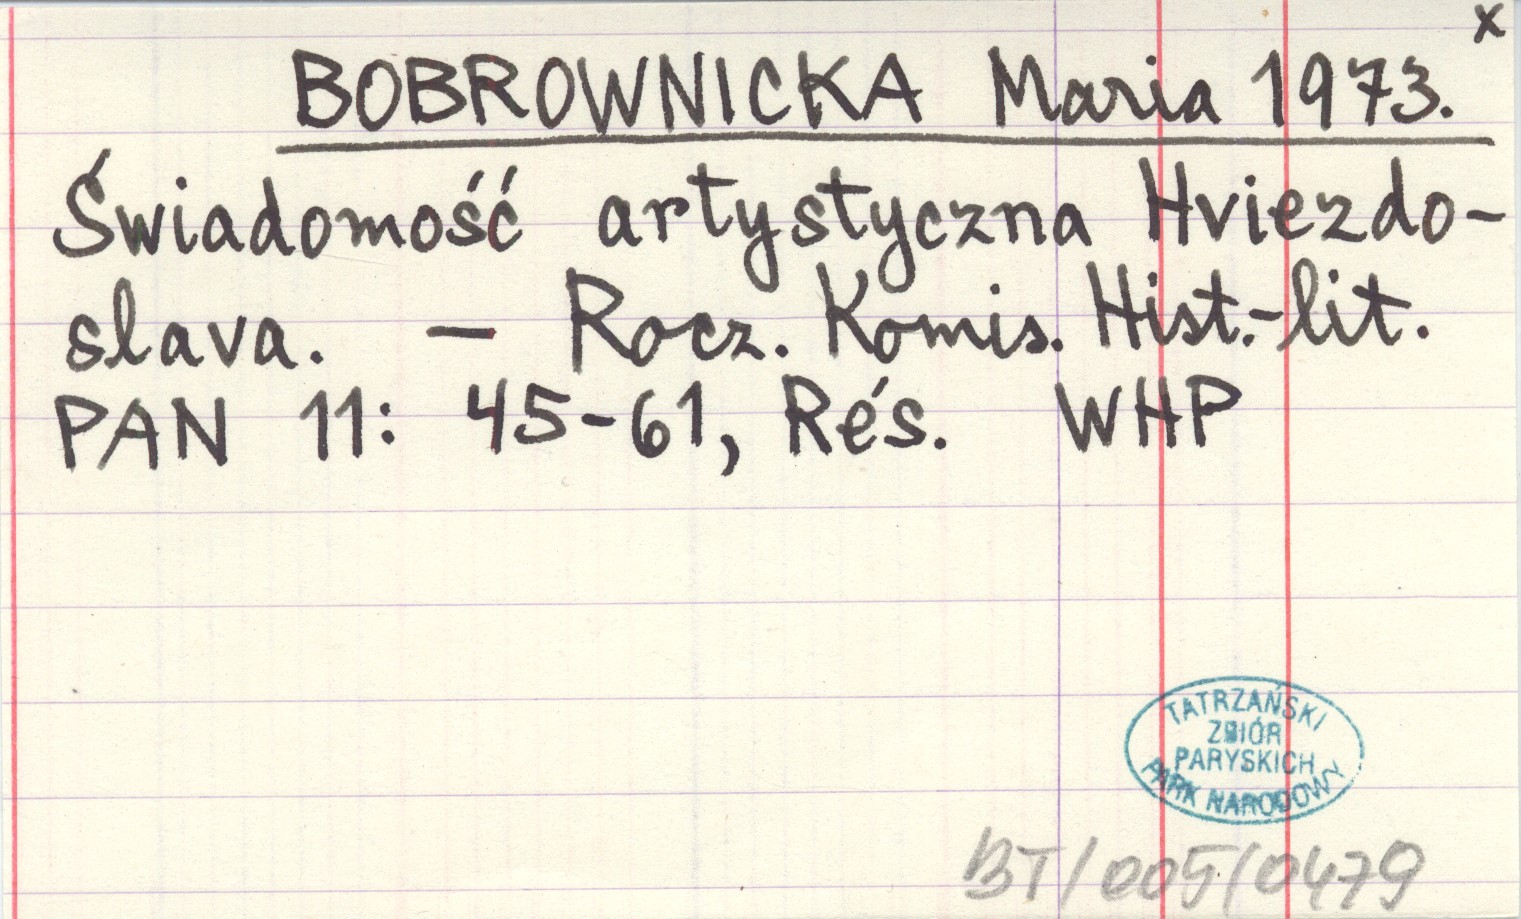 x
BOBROWNICKA Maria 1973.
Świadomość artystyczna Hviezdo-
slava. — Rocz. Komis. Hist.-lit.
PAN 11: 45-61, Rés. WHP
TATRZAŃSKI
ZBIÓR
PARYSKICH
PARK NARODOWY
BT/005/0479